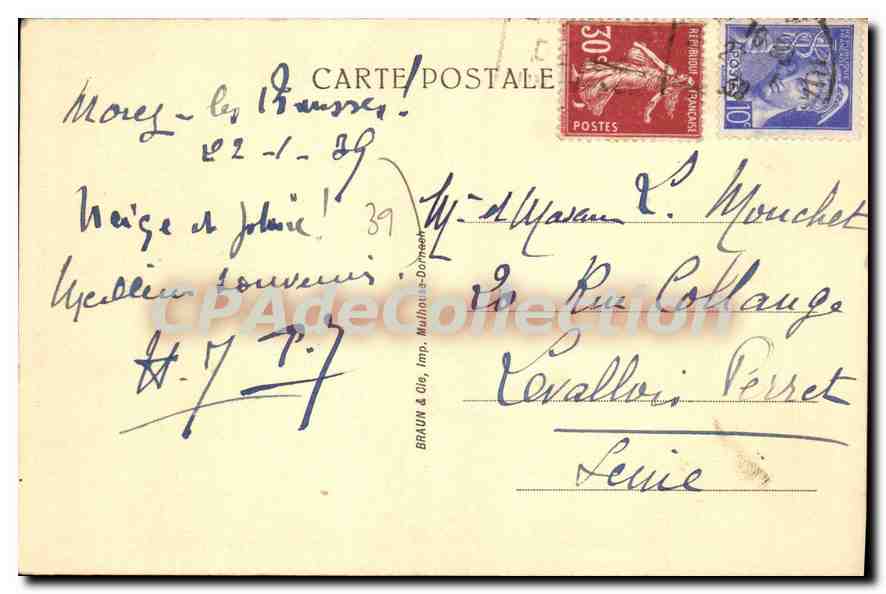 CARTE POSTALE
30c
RÉPUBLIQUE FRANÇAISE
POSTES
RÉPUBLIQUE FRANÇAISE
POSTES
10c
Morez - les !
22-1-39
Neige et !
39
Meilleurs souvenirs.
H. J P. J
Mr et Madame L. Mouchet
20 Rue Collange
Levallois Perret
Seine
BRAUN & Cie, Imp. Mulhouse-Dornach
CPAdeCollection